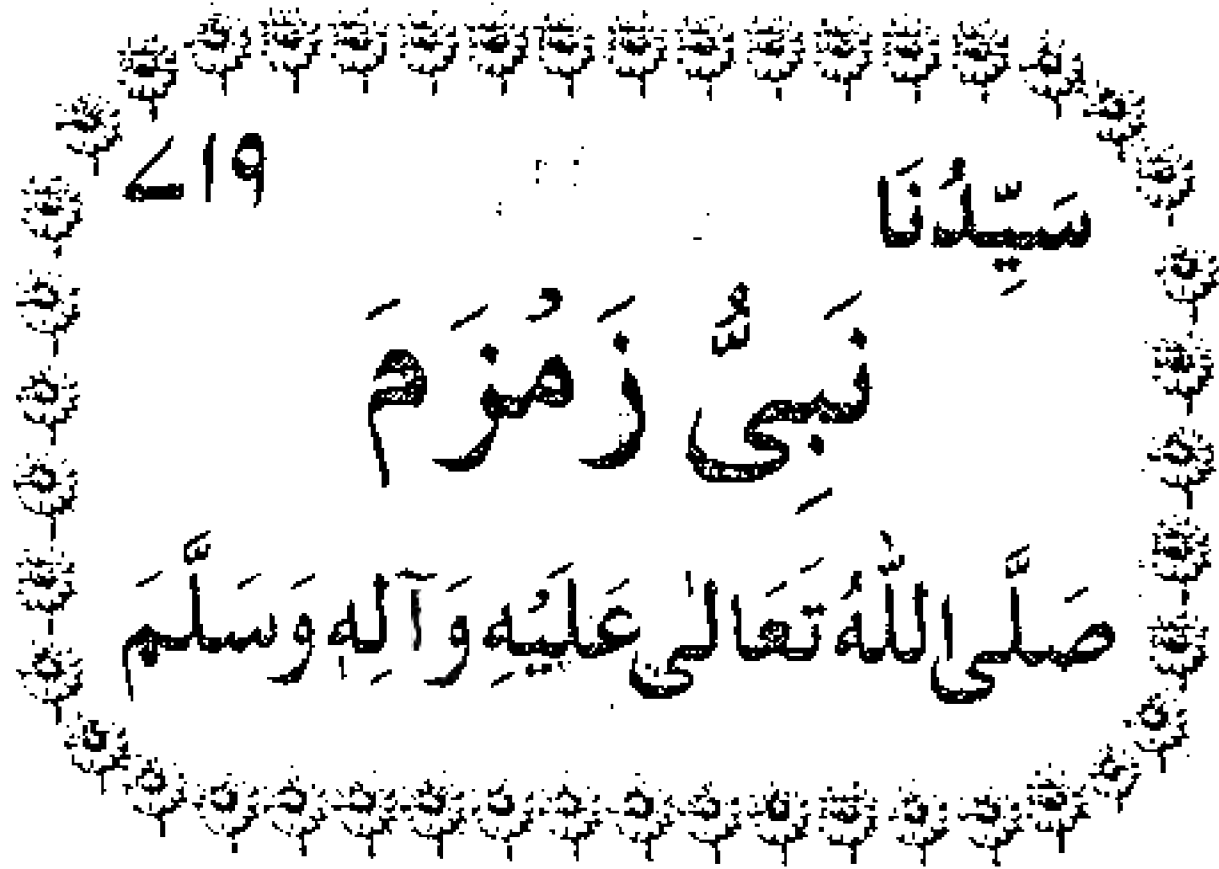 ۷۱۹
سَيِّدُنَا
نَبِيُّ زَمْزَمَ
صَلَّى اللّٰهُ تَعَالٰى عَلَيْهِ وَآلِهٖ وَسَلَّمَ